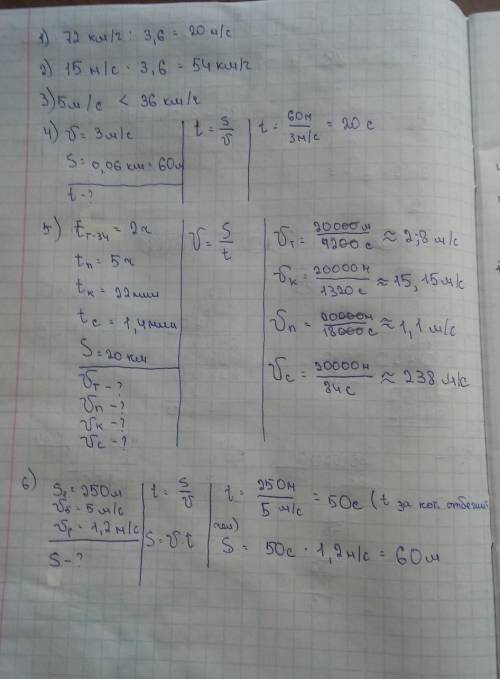 1) 72 км/ч : 3,6 = 20 м/с
2) 15 м/с · 3,6 = 54 км/ч
3) 5 м/с < 36 км/ч
4) v = 3 м/с
S = 0,06 км = 60 м
t - ?
t = S/v
t = 60м / 3 м/с = 20 с
5) t т-34 = 2ч
t п = 5ч
t к = 22 мин
t с = 1,4 мин
S = 20 км
v т - ?
v п - ?
v к - ?
v с - ?
v = S/t
v т = 20000м / 7200 с ≈ 2,8 м/с
v к = 20000м / 1320с ≈ 15,15 м/с
v п = 20000м / 18000с ≈ 1,1 м/с
v с = 20000м / 84с ≈ 238 м/с
6) S₁ = 250м
v = 5 м/с
v = 1,2 м/с
S - ?
t = S/v
S = v·t
t = 250м / 5 м/с = 50с (t за
S = 50с · 1,2 м/с = 60 м